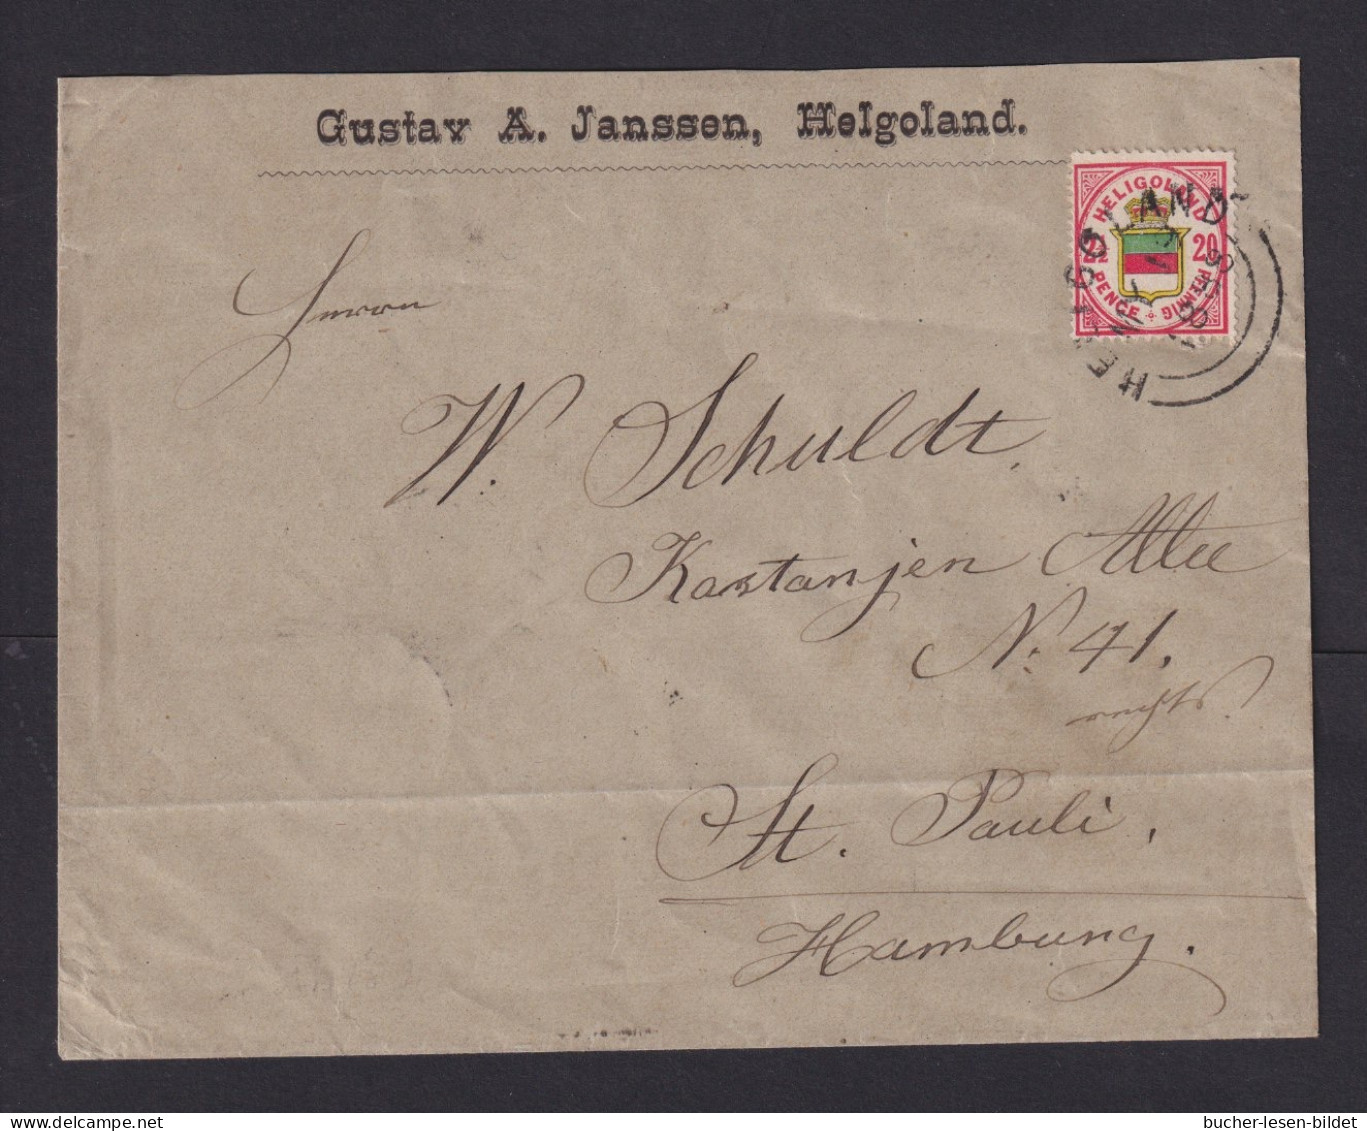 Gustav A. Janssen, Helgoland.
HELIGOLAND
2½ 20
PENCE PFENNIG
HELIGOLAND
Herrn
W. Schuldt,
Kastanjen Allee
No: 41.
rechts.
St. Pauli,
Hamburg.
bucher-lesen-bildet